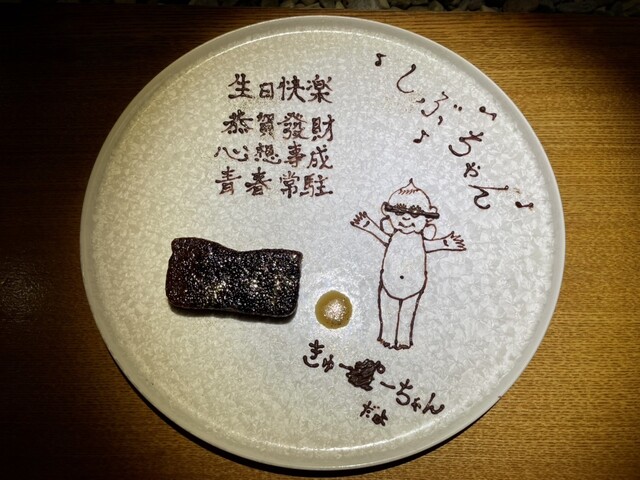 生日快楽
恭賀發財
心想事成
青春常駐
しぶ
ちゃん
きゅーぴーちゃん
だよ